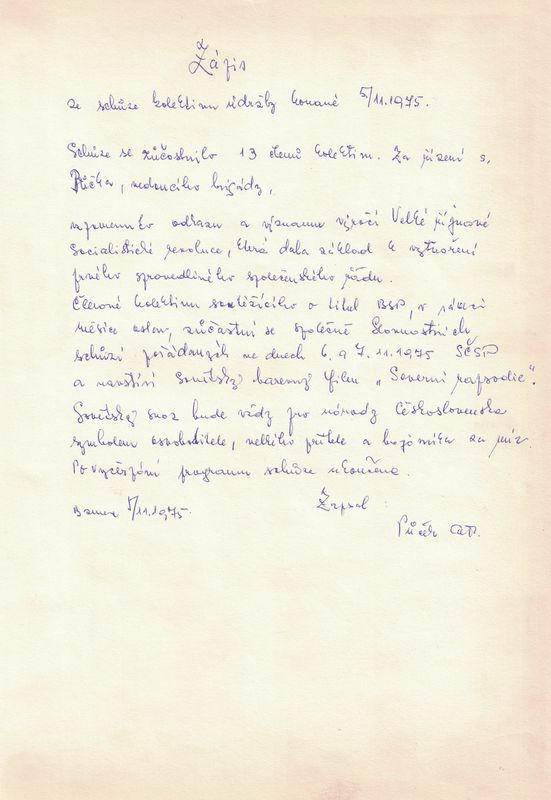 Zápis
ze schůze kolektivu údržby konané 5/11.1975.
Schůze se zůčastnilo 13 členů kolektivu. Za řízení s.
Půčka, vedoucího brigády,
vzpomenuto odkazu a významu výročí Velké říjnové
socialistické revoluce, která dala základ k vytvoření
prvého spravedlivého společenského řádu.
Členové kolektivu soutěžícího o titul BSP, v rámci
měsíce oslav, zůčastní se společně slavnostních
schůzí pořádaných ve dnech 6. a 7.11.1975 SČSP
a navštíví Sovětský barevný film „Severní rapsodie".
Sovětský svaz bude vždy pro národy Československa
symbolem osvoboditele, velkého přítele a bojovníka za mír.
Po vyčerpání programu schůze ukončena.
5/11.1975. Zapsal:
Půček